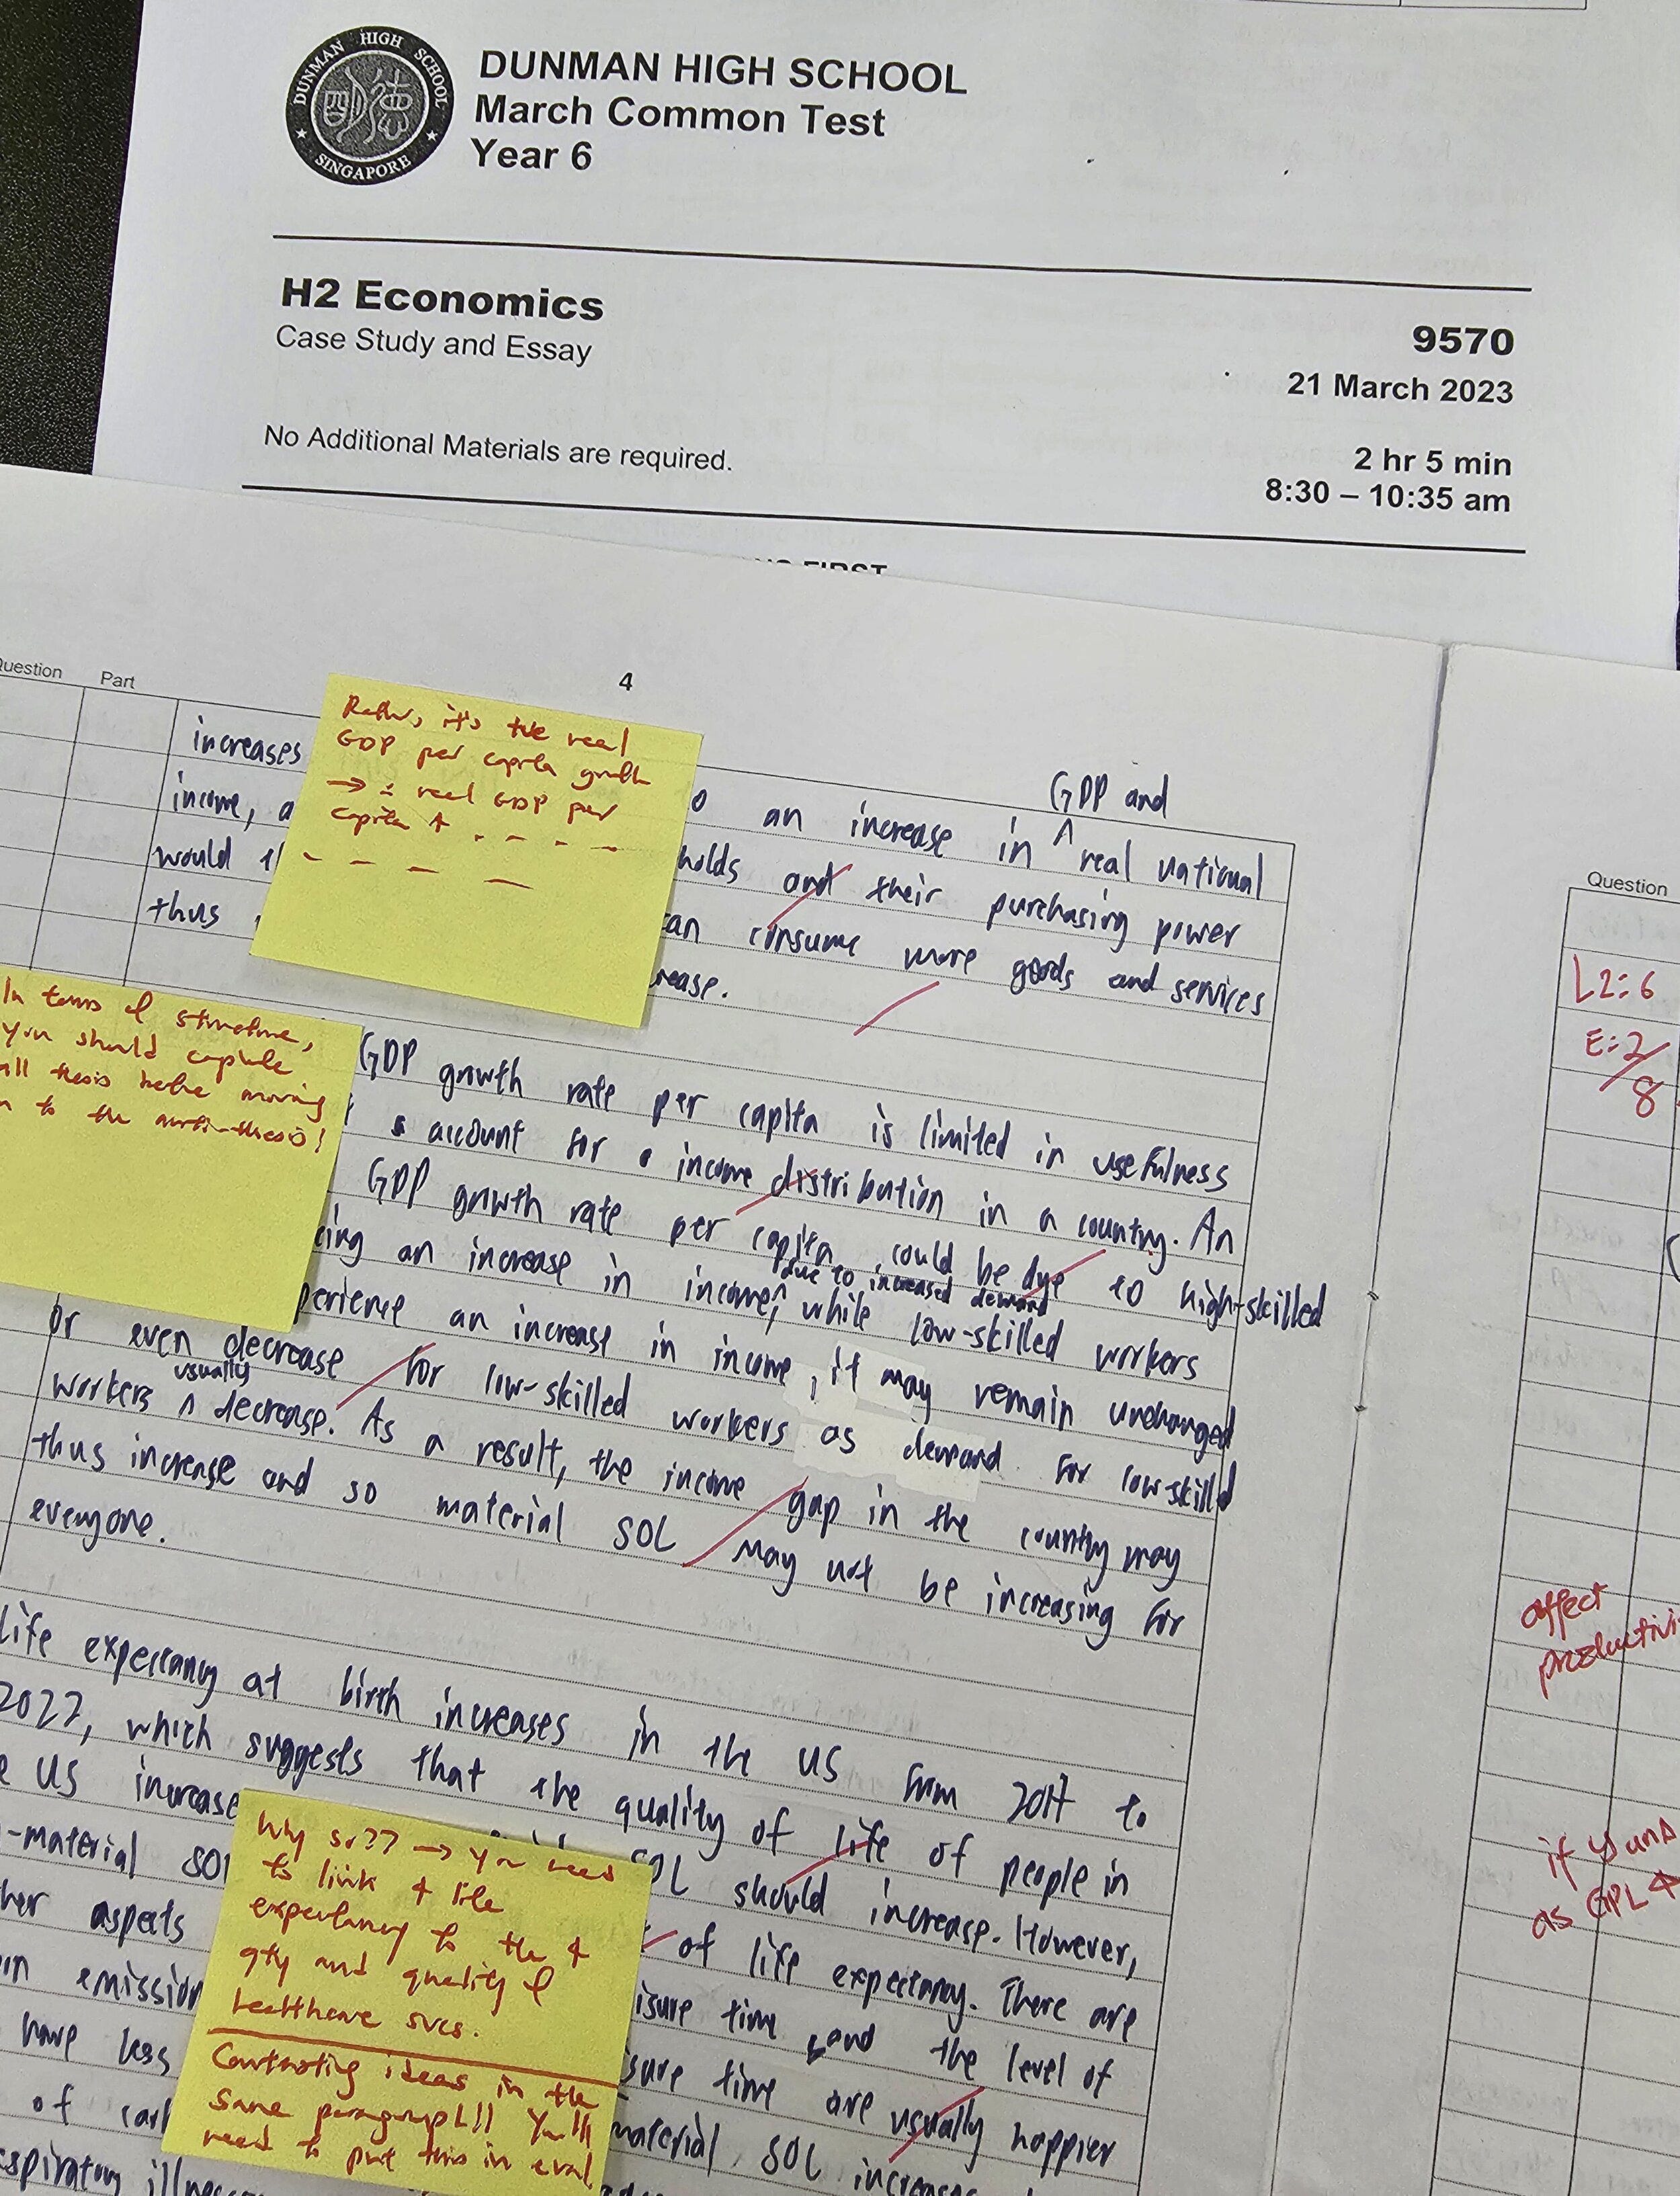 DUNMAN HIGH SCHOOL
SINGAPORE
DUNMAN HIGH SCHOOL
March Common Test
Year 6
H2 Economics
9570
Case Study and Essay
21 March 2023
No Additional Materials are required.
2 hr 5 min
8:30 – 10:35 am
FIRST
Question Part
4
it's the real
GDP per capita growth
→ real GDP per
capita ↑
increases
GDP and
income, a
o an increase in ^ real national
would th
holds and their purchasing power
thus
can consume more goods and services
rease.
In terms of structure,
you should
all thesis before moving
n to the anti-thesis!
GDP growth rate per capita is limited in usefulness
account for income distribution in a country. An
GDP growth rate per capita could be due to high-skilled
due to increased demand
cing an increase in income, ^ while low-skilled workers
perience an increase in income, it may remain unchanged
or even decrease for low-skilled workers as demand for low-skilld
usually
workers ^ decrease. As a result, the income gap in the country may
thus increase and so material SOL may not be increasing for
everyone.
life expectancy at birth increases in the US from 2017 to
2022, which suggests that the quality of life of people in
e US increase
SOL should increase. However,
-material SOL
of life expectancy. There are
her aspects
isure time and the level of
on emission
sure time are usually happier
have less
material SOL increases
of car
spiratory
Why so?? → you need
to link ↑ life
expectancy to the ↑
qty and quality of
healthcare svcs.
Contrasting ideas in the
same paragraph!! You'll
need to put this in eval
Question
L2: 6
E: 2
8
affect
productivi
if
as GPL ↑